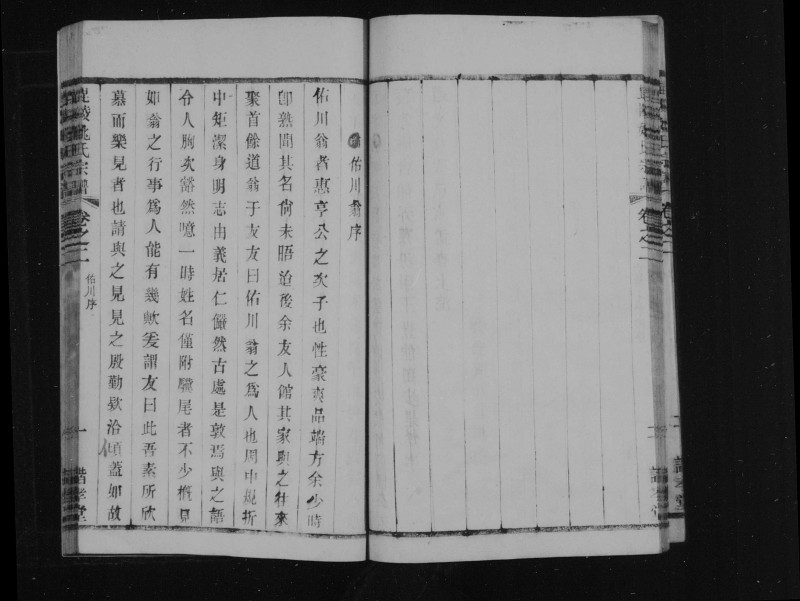 佑川翁序
佑川翁者惠亨公之次子也性豪爽品端方余少時
卽熟聞其名尙未晤迨後余友人館其家與之往來
聚首餘道翁于友友曰佑川翁之爲人也周中規折
中矩潔身明志由義居仁儼然古處是敦焉與之語
令人胸次豁然噫一時姓名僅附驥尾者不少槪見
如翁之行事爲人能有幾歟爰謂友曰此吾素所欣
慕而樂見者也請與之見見之殷勤欵洽傾蓋如故
毘陵姚氏宗譜
卷之二
佑川序
一
諧孝堂